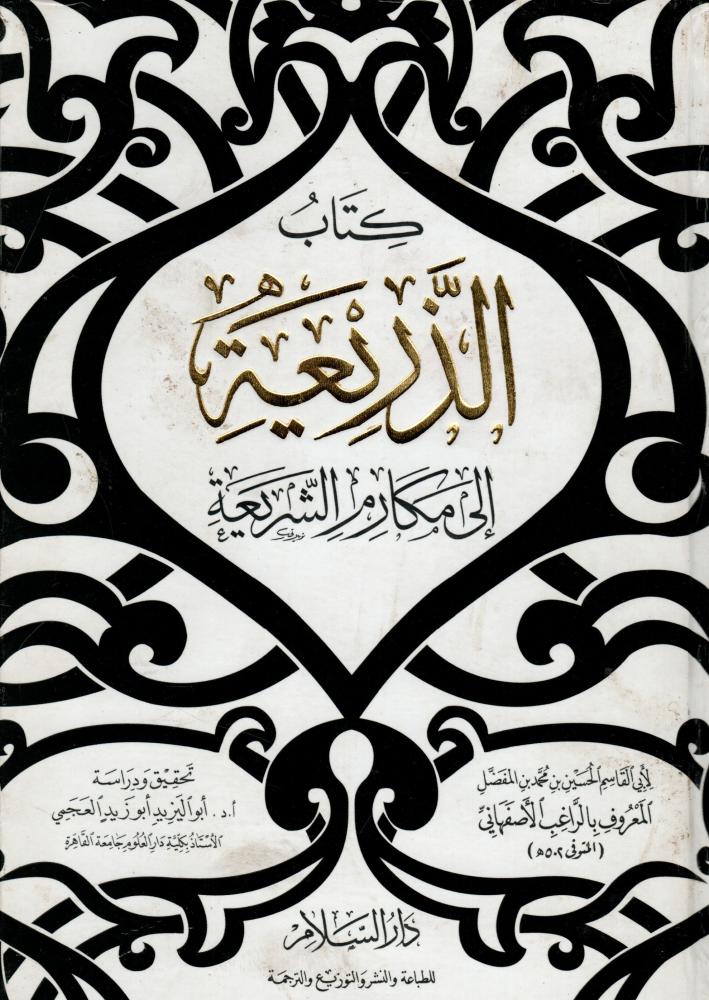 كِتَابُ
الذَّرِيْعَةِ
إلى مَكَارِمِ الشَّرِيْعَةِ
لِأَبِي القَاسِمِ الْحُسَيْن بن مُحَمَّد بن المفَضَّل
المَعْرُوفِ بِالرَّاغِبِ الأَصْفَهَانِيّ
(المتوفى ٥٠٢ه)
تحقِيق وَدِرَاسَة
أ.د. أبو اليَزِيد أبو زَيدٍ العَجَمِي
الأُسْتَاذ بِكليَّةِ دَارِ العُلُومِ جَامعَة القَاهِرَة
دَارُ السَّلَامِ
للطباعة والنشر والتوزيع والترجمة